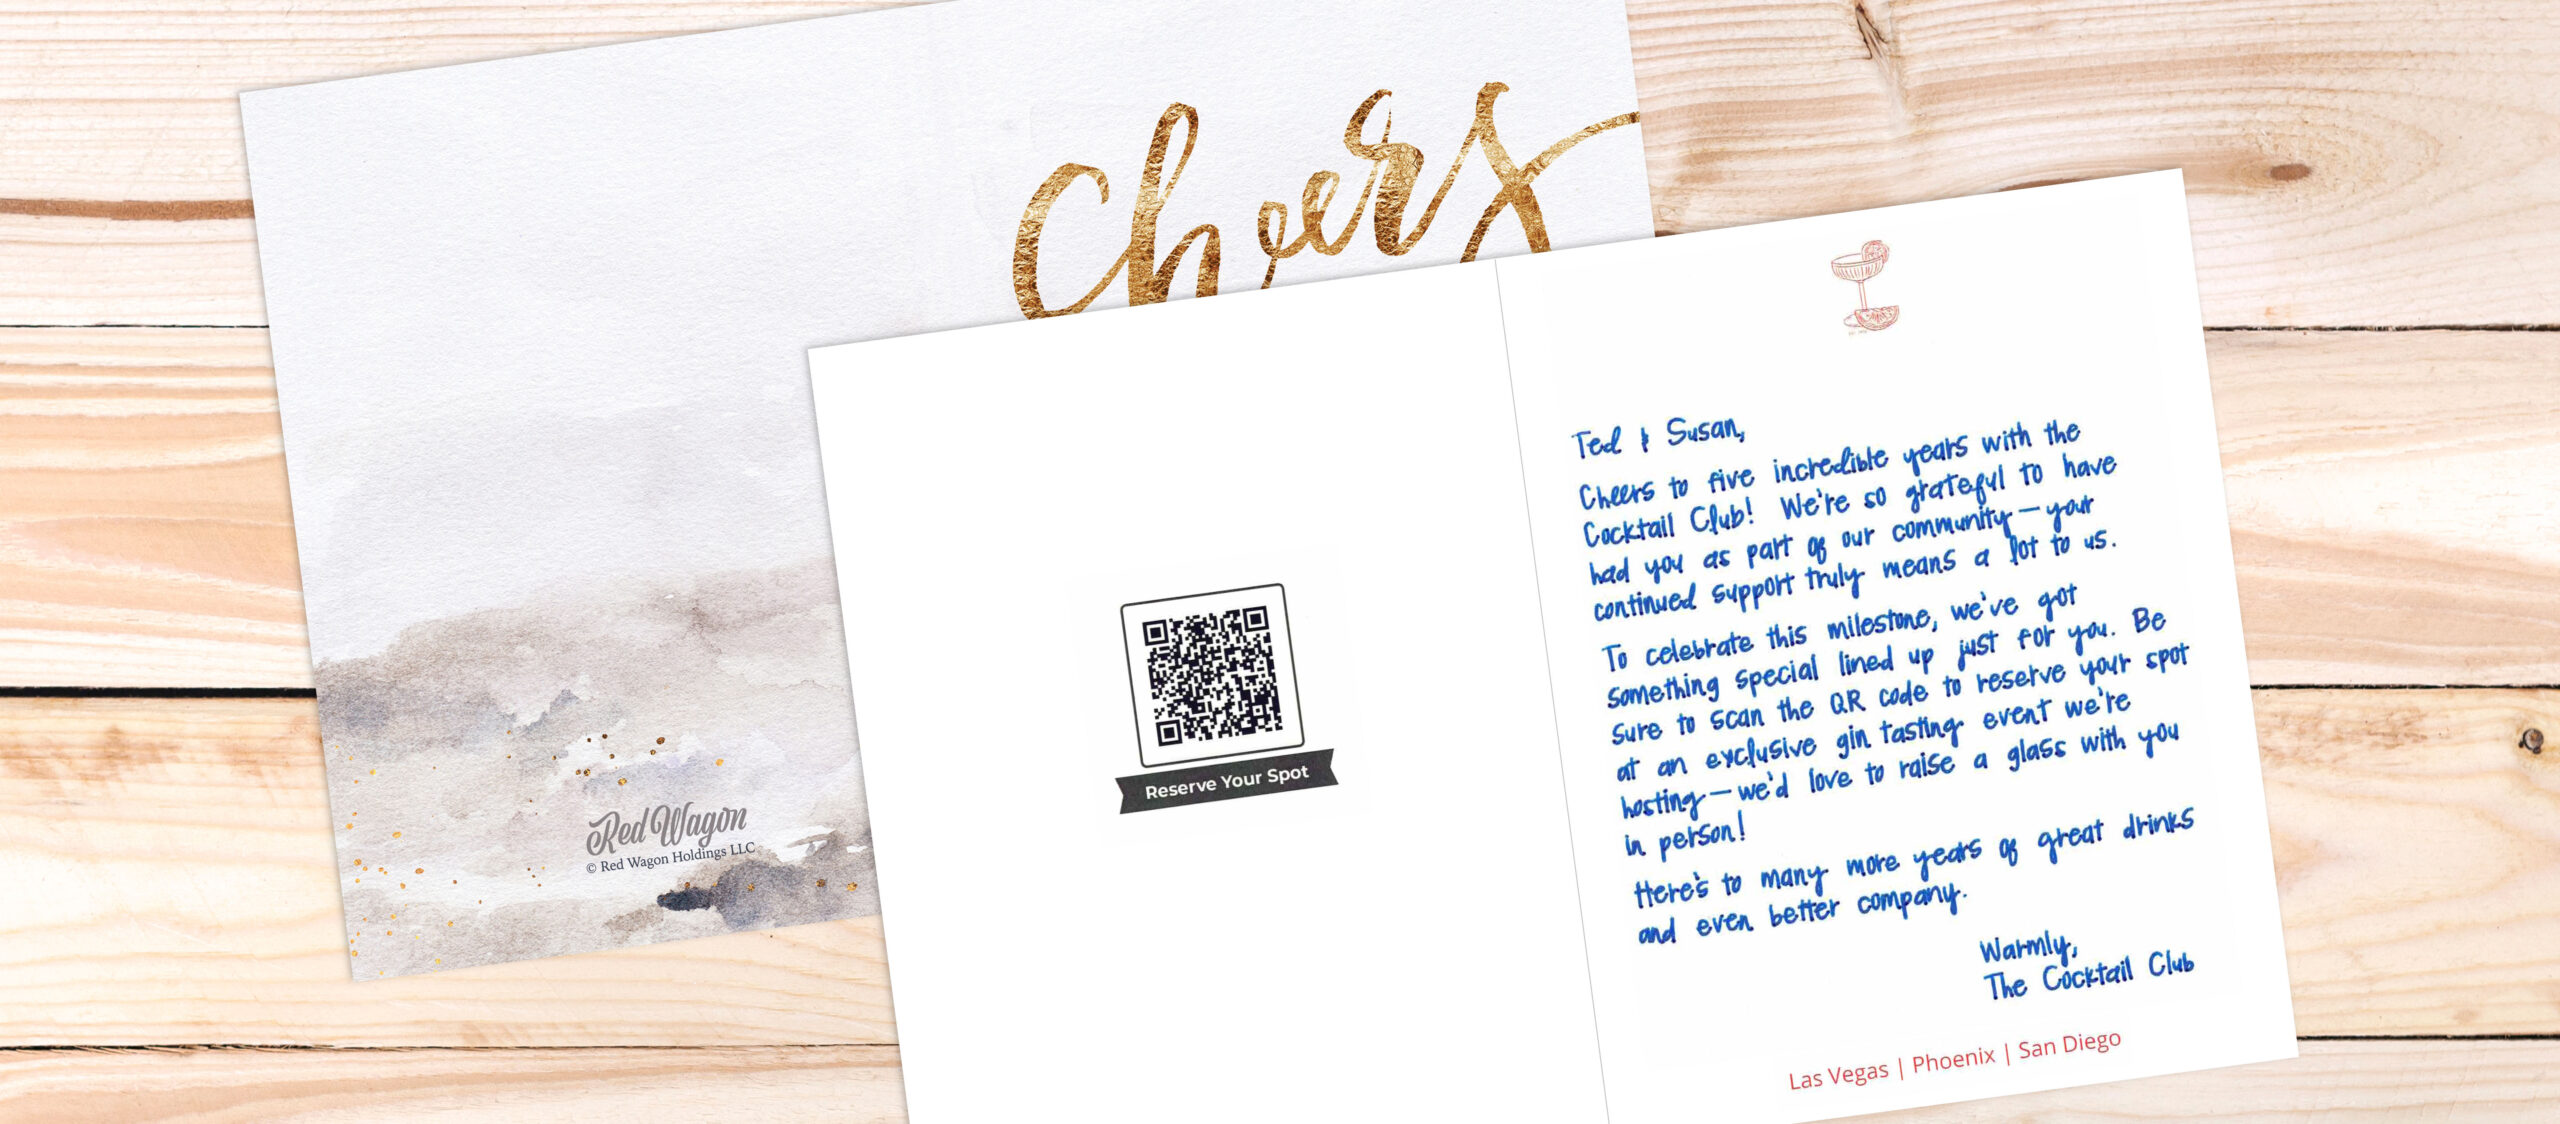 Cheers
Red Wagon
© Red Wagon Holdings LLC
Reserve Your Spot
Ted & Susan,
Cheers to five incredible years with the
Cocktail Club! We're so grateful to have
had you as part of our community—your
continued support truly means a lot to us.
To celebrate this milestone, we've got
something special lined up just for you. Be
sure to scan the QR code to reserve your spot
at an exclusive gin tasting event we're
hosting—we'd love to raise a glass with you
in person!
Here's to many more years of great drinks
and even better company.
Warmly,
The Cocktail Club
Las Vegas | Phoenix | San Diego